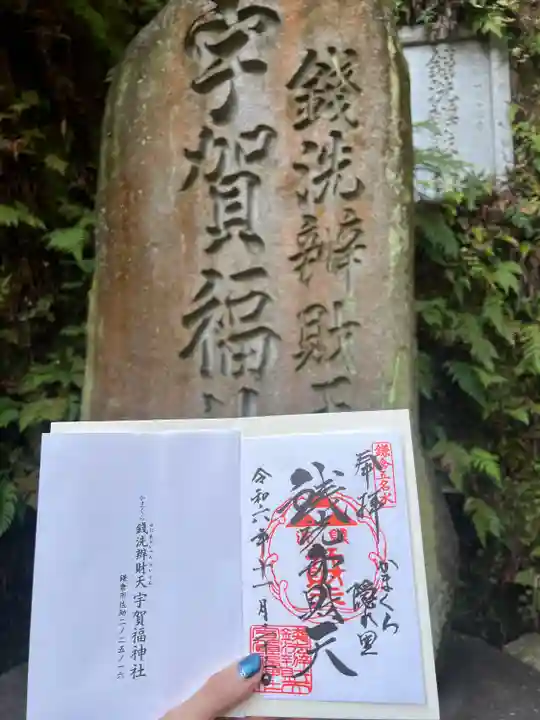 錢洗辨財天
宇賀福神
錢洗
鎌倉五名水
奉拝
かまくら
隠れ里
銭洗弁財天
令和六年十一月
かまくら
錢洗辨財天宇賀福神社
鎌倉市佐助二ノ二五ノ一六